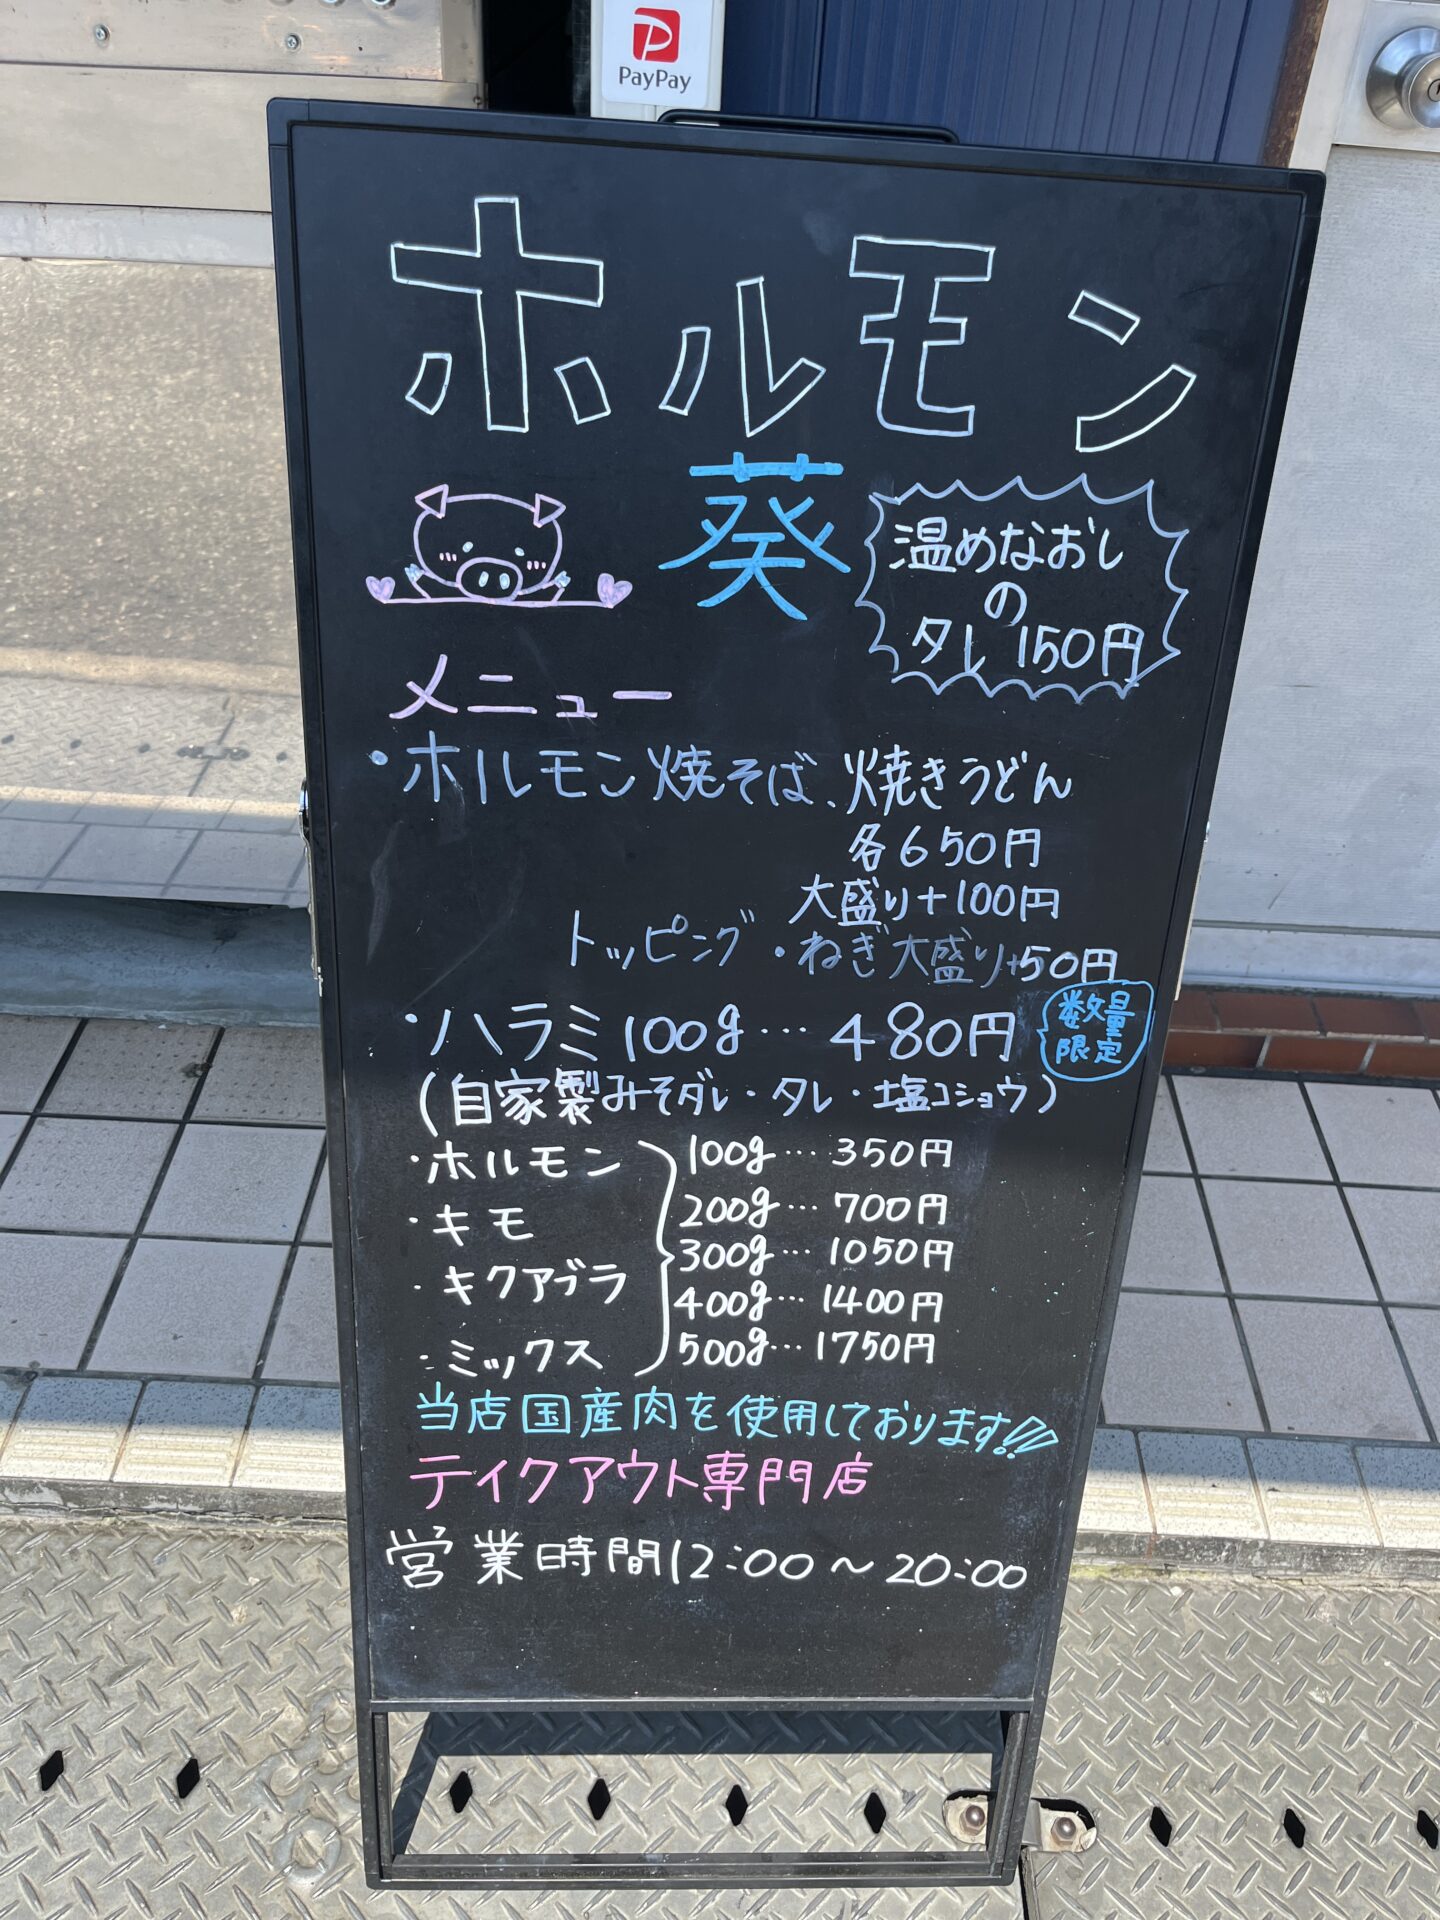 PayPay
ホルモン
葵
温めなおし
の
タレ150円
メニュー
・ホルモン焼そば、焼きうどん
各650円
大盛り+100円
トッピング・ねぎ大盛り+50円
・ハラミ100g…480円
数量
限定
(自家製みそダレ・タレ・塩コショウ)
・ホルモン
・キモ
・キクアブラ
・ミックス
100g…350円
200g…700円
300g…1050円
400g…1400円
500g…1750円
当店国産肉を使用しております!!
テイクアウト専門店
営業時間12:00～20:00